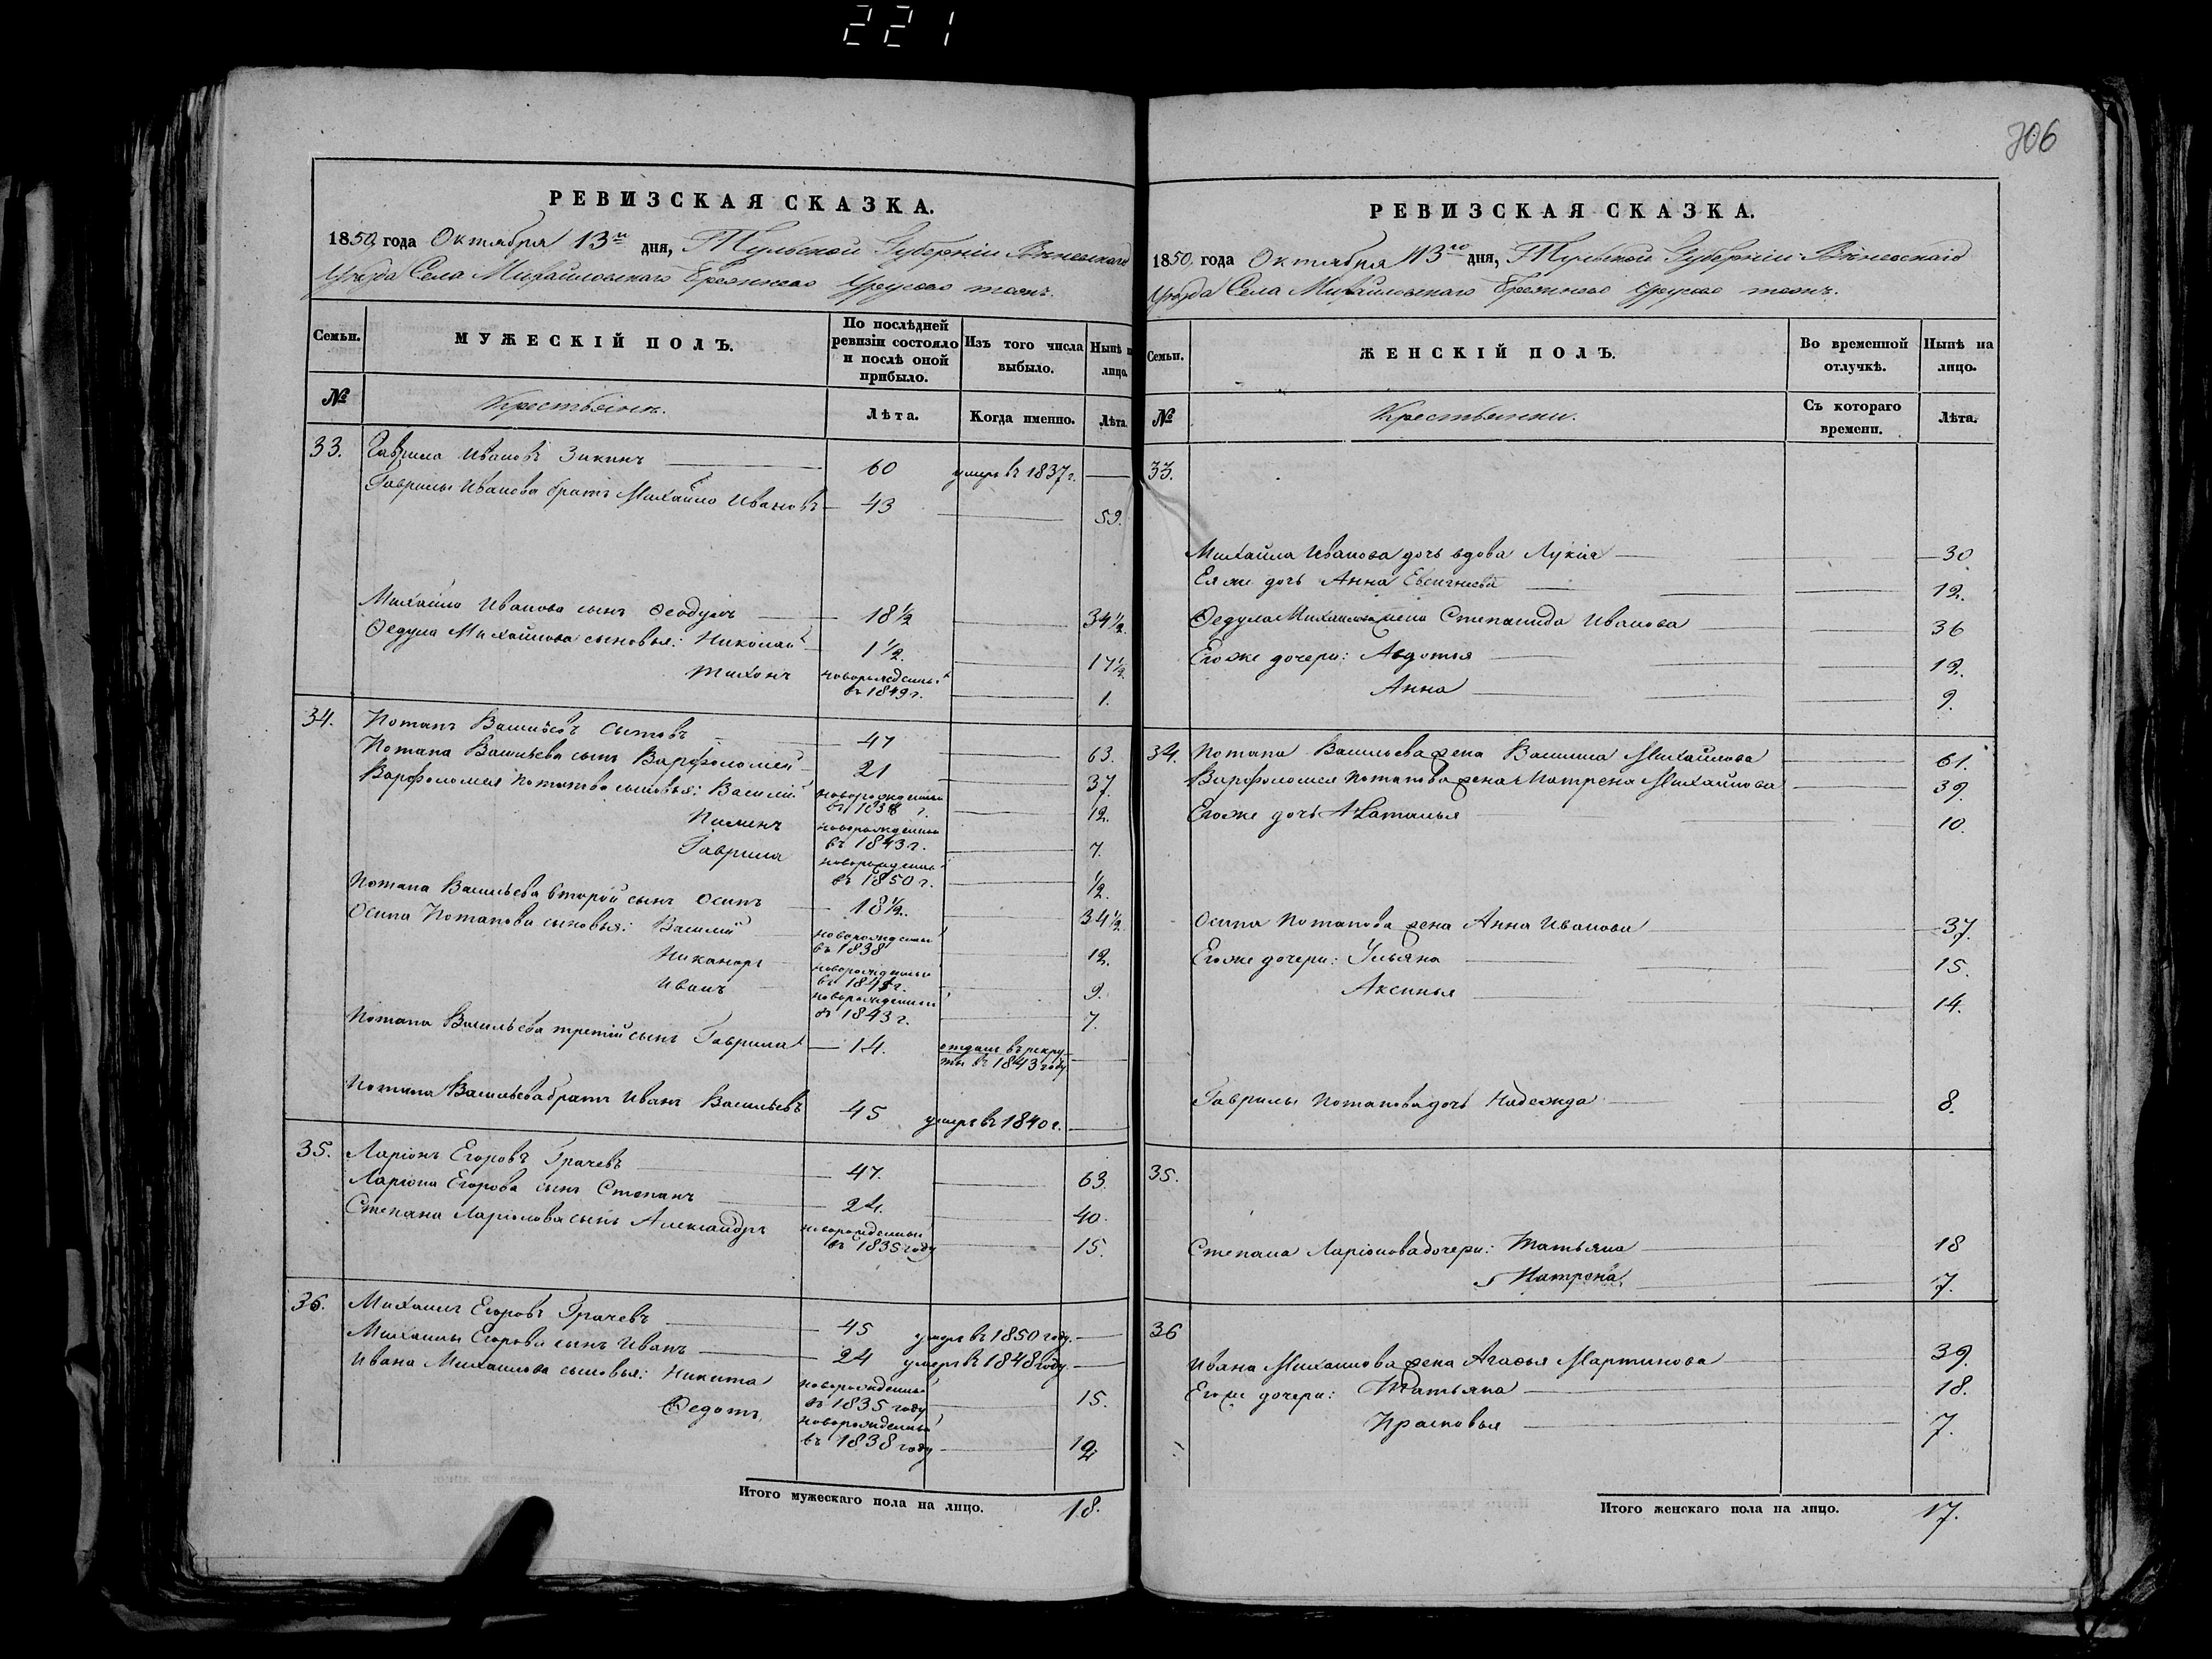 221
306
РЕВИЗСКАЯ СКАЗКА.
1850 года Октября 13го дня, Тульской Губерніи Веневскаго
Уѣзда Села Михайловскаго
Семьи.
МУЖЕСКІЙ ПОЛЪ.
По послѣдней ревизіи состояло и послѣ оной прибыло.
Изъ того числа выбыло.
Нынѣ на лицо.
№
Крестьяне.
Лѣта.
Когда именно.
Лѣта.
33. Гаврила Ивановъ Зикинъ 60 умеръ въ 1837 г.
Гаврилы Иванова братъ Михайло Ивановъ 43 59.
Михайло Иванова сынъ Ѳедулъ 18½ 34½.
Ѳедула Михайлова сыновья: Николай 1½. 17½.
Тихонъ новорожденный въ 1849 г. 1.
34. Потапъ Васильевъ Сытовъ 47 63.
Потапа Васильева сынъ Варфоломей 21 37.
Варфоломея Потапова сыновья: Василій новорожденный въ 1838 г. 12.
Пименъ новорожденный въ 1843 г. 7.
Гаврила новорожденный въ 1850 г. ½.
Потапа Васильева второй сынъ Осипъ 18½. 34½.
Осипа Потапова сыновья: Василій новорожденный въ 1838 12.
Никаноръ новорожденный въ 1841 г. 9.
Иванъ новорожденный въ 1843 г. 7.
Потапа Васильева третій сынъ Гаврила 14. отданъ въ рекруты въ 1843 году
Потапа Васильева братъ Иванъ Васильевъ 45 умеръ въ 1840 г.
35. Ларіонъ Егоровъ Грачевъ 47. 63.
Ларіона Егорова сынъ Степанъ 24. 40.
Степана Ларіонова сынъ Александръ новорожденный въ 1835 году 15.
36. Михаилъ Егоровъ Грачевъ 45 умеръ въ 1850 году.
Михаилы Егорова сынъ Иванъ 24 умеръ въ 1848 году.
Ивана Михаилова сыновья: Никита новорожденный въ 1835 году 15.
Ѳедотъ новорожденный въ 1838 году 12
Итого мужескаго пола на лицо. 18.
РЕВИЗСКАЯ СКАЗКА.
1850 года Октября 13го дня, Тульской Губерніи Веневскаго
Уѣзда Села Михайловскаго
Семьи.
ЖЕНСКІЙ ПОЛЪ.
Во временной отлучкѣ.
Нынѣ на лицо.
№
Крестьянки.
Съ котораго времени.
Лѣта.
33.
Михайла Иванова дочь вдова Лукія 30
Ея же дочь Анна Евсигнеева 12.
Ѳедула Михайлова жена Степанида Иванова 36
Его же дочери: Авдотья 12.
Анна 9.
34. Потапа Васильева жена Василиса Михайлова 61.
Варфоломея Потапова жена Матрена Михайлова 39.
Его же дочь Наталья 10.
Осипа Потапова жена Анна Иванова 37.
Его же дочери: Ульяна 15.
Аксинья 14.
Гаврилы Потапова дочь Надежда 8.
35.
Степана Ларіонова дочери: Татьяна 18
Матрена 7.
36
Ивана Михаилова жена Агафья Мартинова 39.
Его же дочери: Татьяна 18.
Прасковья 7.
Итого женскаго пола на лицо. 17.